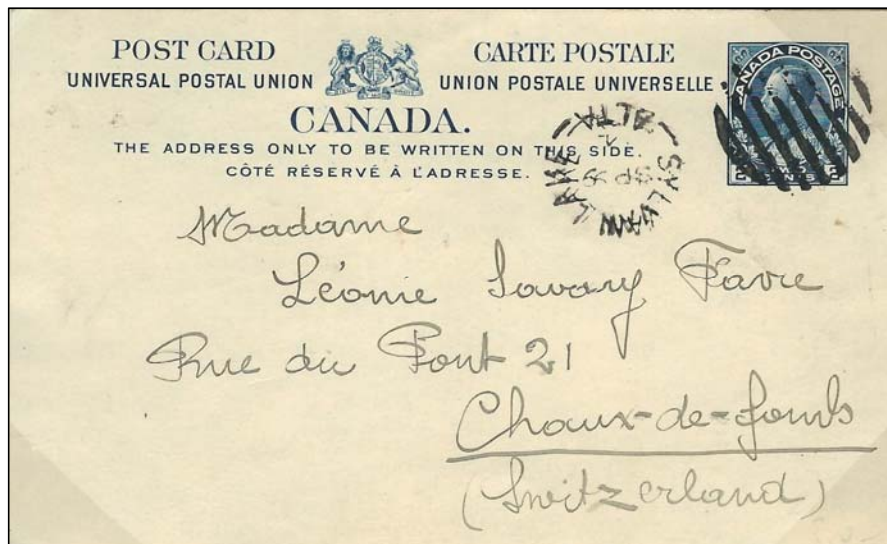 POST CARD CARTE POSTALE
UNIVERSAL POSTAL UNION UNION POSTALE UNIVERSELLE
CANADA.
THE ADDRESS ONLY TO BE WRITTEN ON THIS SIDE.
CÔTÉ RÉSERVÉ À L'ADRESSE.
CANADA POSTAGE
CENTS
SYLVAN LAKE ALTA
SP
Madame
Léonie Savary Favre
Rue du Pont 21
Chaux-de-fonds
(Switzerland)